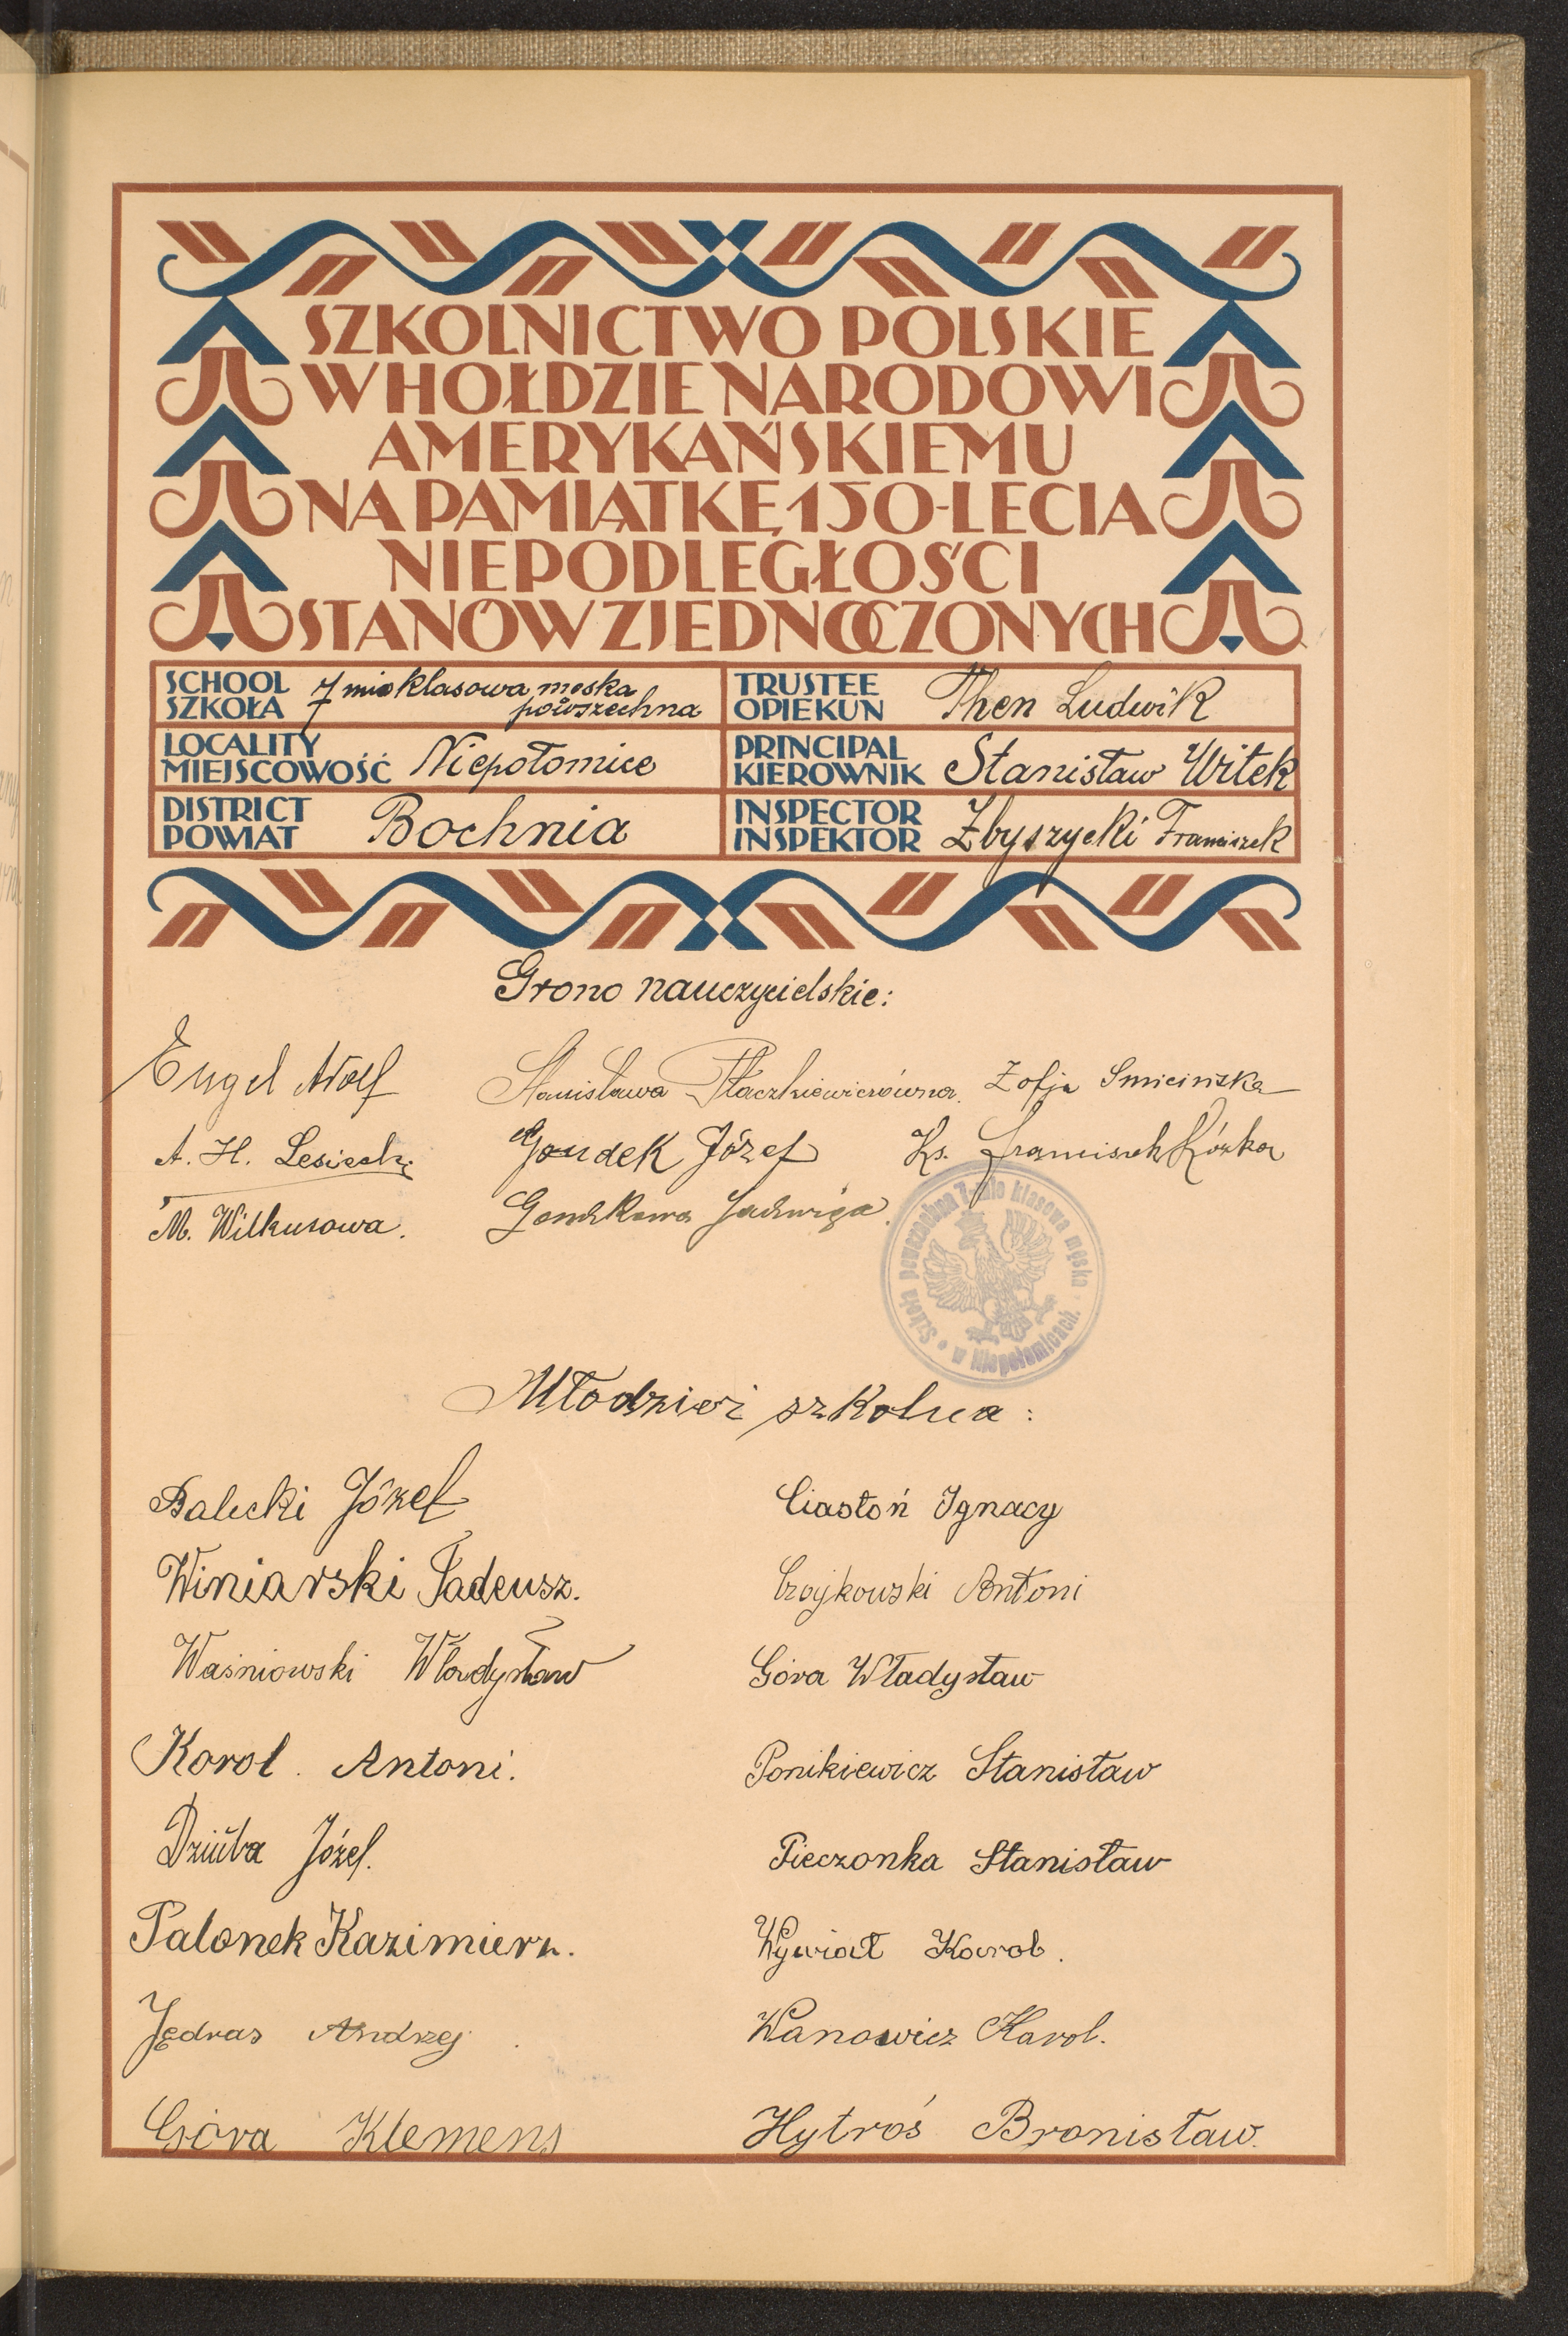 SZKOLNICTWO POLSKIE
W HOŁDZIE NARODOWI
AMERYKAŃSKIEMU
NA PAMIĄTKĘ 150-LECIA
NIEPODLEGŁOŚCI
STANÓW ZJEDNOCZONYCH
SCHOOL
SZKOŁA
7 mio klasowa męska
powszechna
TRUSTEE
OPIEKUN
Then Ludwik
LOCALITY
MIEJSCOWOŚĆ
Niepołomice
PRINCIPAL
KIEROWNIK
Stanisław Witek
DISTRICT
POWIAT
Bochnia
INSPECTOR
INSPEKTOR
Zbyszycki Franciszek
Grono nauczycielskie:
Engel Adolf
Stanisława Płaczkiewiczówna.
Zofja Smicińska
A. H. Lesiecki
Gondek Józef
Ks. Franciszek Kózka
M. Wilkusowa.
Gondkowa Jadwiga.
Szkoła powszechna 7-mio klasowa męska
w Niepołomicach.
Młodzież szkolna:
Balicki Józef
Ciastoń Ignacy
Winiarski Tadeusz.
Czajkowski Antoni
Waśniowski Władysław
Góra Władysław
Korol. Antoni.
Ponikiewicz Stanisław
Dziuba Józef.
Pieczonka Stanisław
Palonek Kazimierz.
Wywiał Karol.
Jędras Andrzej
Wanowicz Karol.
Góra Klemens
Hytroś Bronisław.